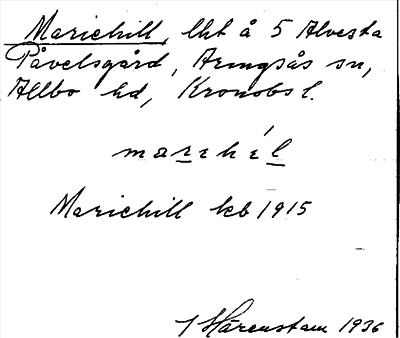 Mariehill, lht å 5 Alvesta
Påvelsgård, Aringsås sn,
Allbo hd, Kronobs l.
marehél
Mariehill kb 1915
J Härenstam 1936